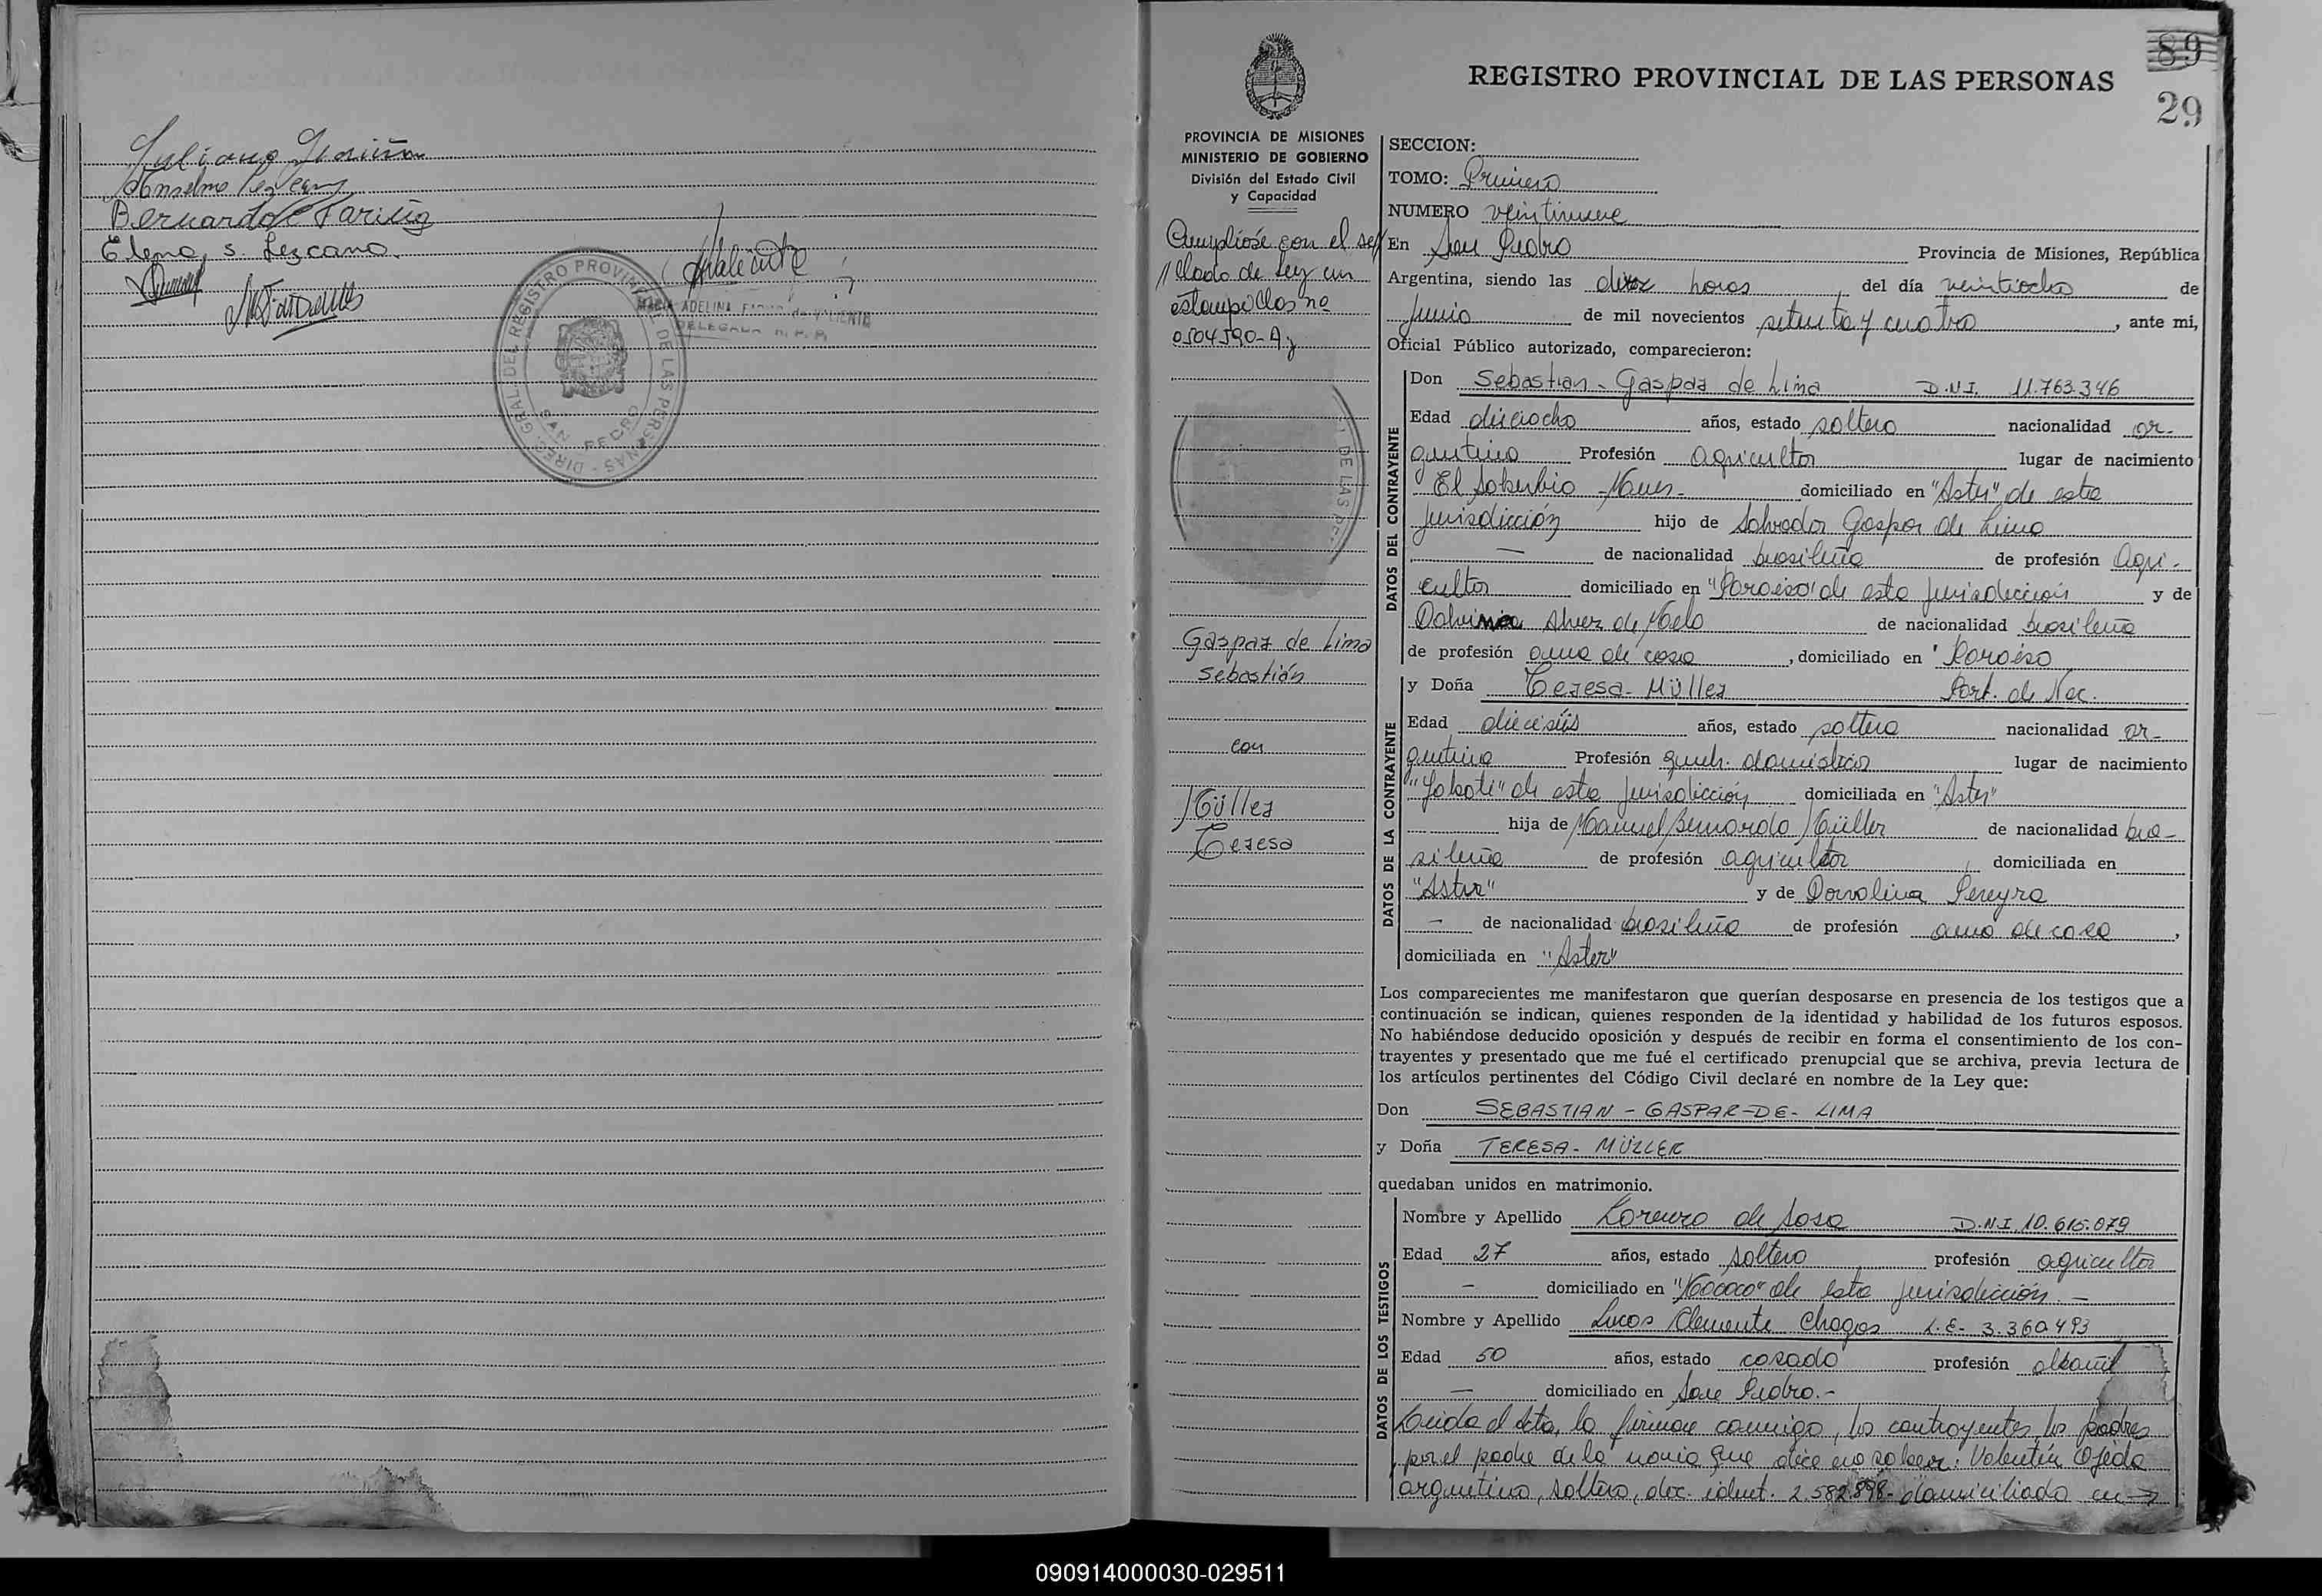 Bernardo Fariña
Elena S. Lezcano.
Valiente
DIREC. GRAL DEL REGISTRO PROVINCIAL DE LAS PERSONAS -
SAN PEDRO
MARIA ADELINA de VALIENTE
DELEGADA R. P. P.
89
29
REGISTRO PROVINCIAL DE LAS PERSONAS
PROVINCIA DE MISIONES
MINISTERIO DE GOBIERNO
División del Estado Civil
y Capacidad
Cumpliose con el se//
//llado de Ley en
estampillas nº
0504590-A
DE LAS
Gaspar de Lima
Sebastián
con
Müller
Teresa
SECCION:
TOMO: Primero
NUMERO veintinueve
En San Pedro Provincia de Misiones, República
Argentina, siendo las diez horas del día veintiocho de
Junio de mil novecientos setenta y cuatro, ante mi,
Oficial Público autorizado, comparecieron:
DATOS DEL CONTRAYENTE
Don Sebastian - Gaspar de Lima D.N.I. 11.763.346
Edad dieciocho años, estado soltero nacionalidad ar-
gentina Profesión agricultor lugar de nacimiento
El Soberbio - Mnes - domiciliado en "Aster" de esta
jurisdicción hijo de Salvador Gaspar de Lima
— de nacionalidad brasileña de profesión Agri-
cultor domiciliado en "Paraiso" de esta jurisdicción y de
Alves de Melo de nacionalidad brasileña
de profesión ama de casa, domiciliado en "Paraiso
DATOS DE LA CONTRAYENTE
y Doña Teresa - Müller Part. de Nac.
Edad dieciséis años, estado soltera nacionalidad ar-
gentina Profesión queh. domésticos lugar de nacimiento
"Yaboti" de esta jurisdicción domiciliada en "Aster"
hija de Manuel Bernardo Müller de nacionalidad bra-
sileña de profesión agricultor domiciliada en
"Aster" y de Dorvalina Pereyra
— de nacionalidad brasileña de profesión ama de casa,
domiciliada en "Aster"
Los comparecientes me manifestaron que querían desposarse en presencia de los testigos que a
continuación se indican, quienes responden de la identidad y habilidad de los futuros esposos.
No habiéndose deducido oposición y después de recibir en forma el consentimiento de los con-
trayentes y presentado que me fué el certificado prenupcial que se archiva, previa lectura de
los artículos pertinentes del Código Civil declaré en nombre de la Ley que:
Don SEBASTIAN - GASPAR - DE - LIMA
y Doña TERESA - MÜLLER
quedaban unidos en matrimonio.
DATOS DE LOS TESTIGOS
Nombre y Apellido Lorenzo de Sosa D.N.I. 10.615.079
Edad 27 años, estado soltero profesión agricultor
— domiciliado en de esta jurisdicción. —
Nombre y Apellido Lucas Clemente Chagas L.E. 3.360.493
Edad 50 años, estado casado profesión albañil
— domiciliado en San Pedro. -
Leida el Acta, la firman conmigo, los contrayentes, los padres
, por el padre de la novia que dice no saber: Valentín Ojeda
argentino, soltero, doc. ident. 2.582.898 - domiciliado en →
090914000030-029511